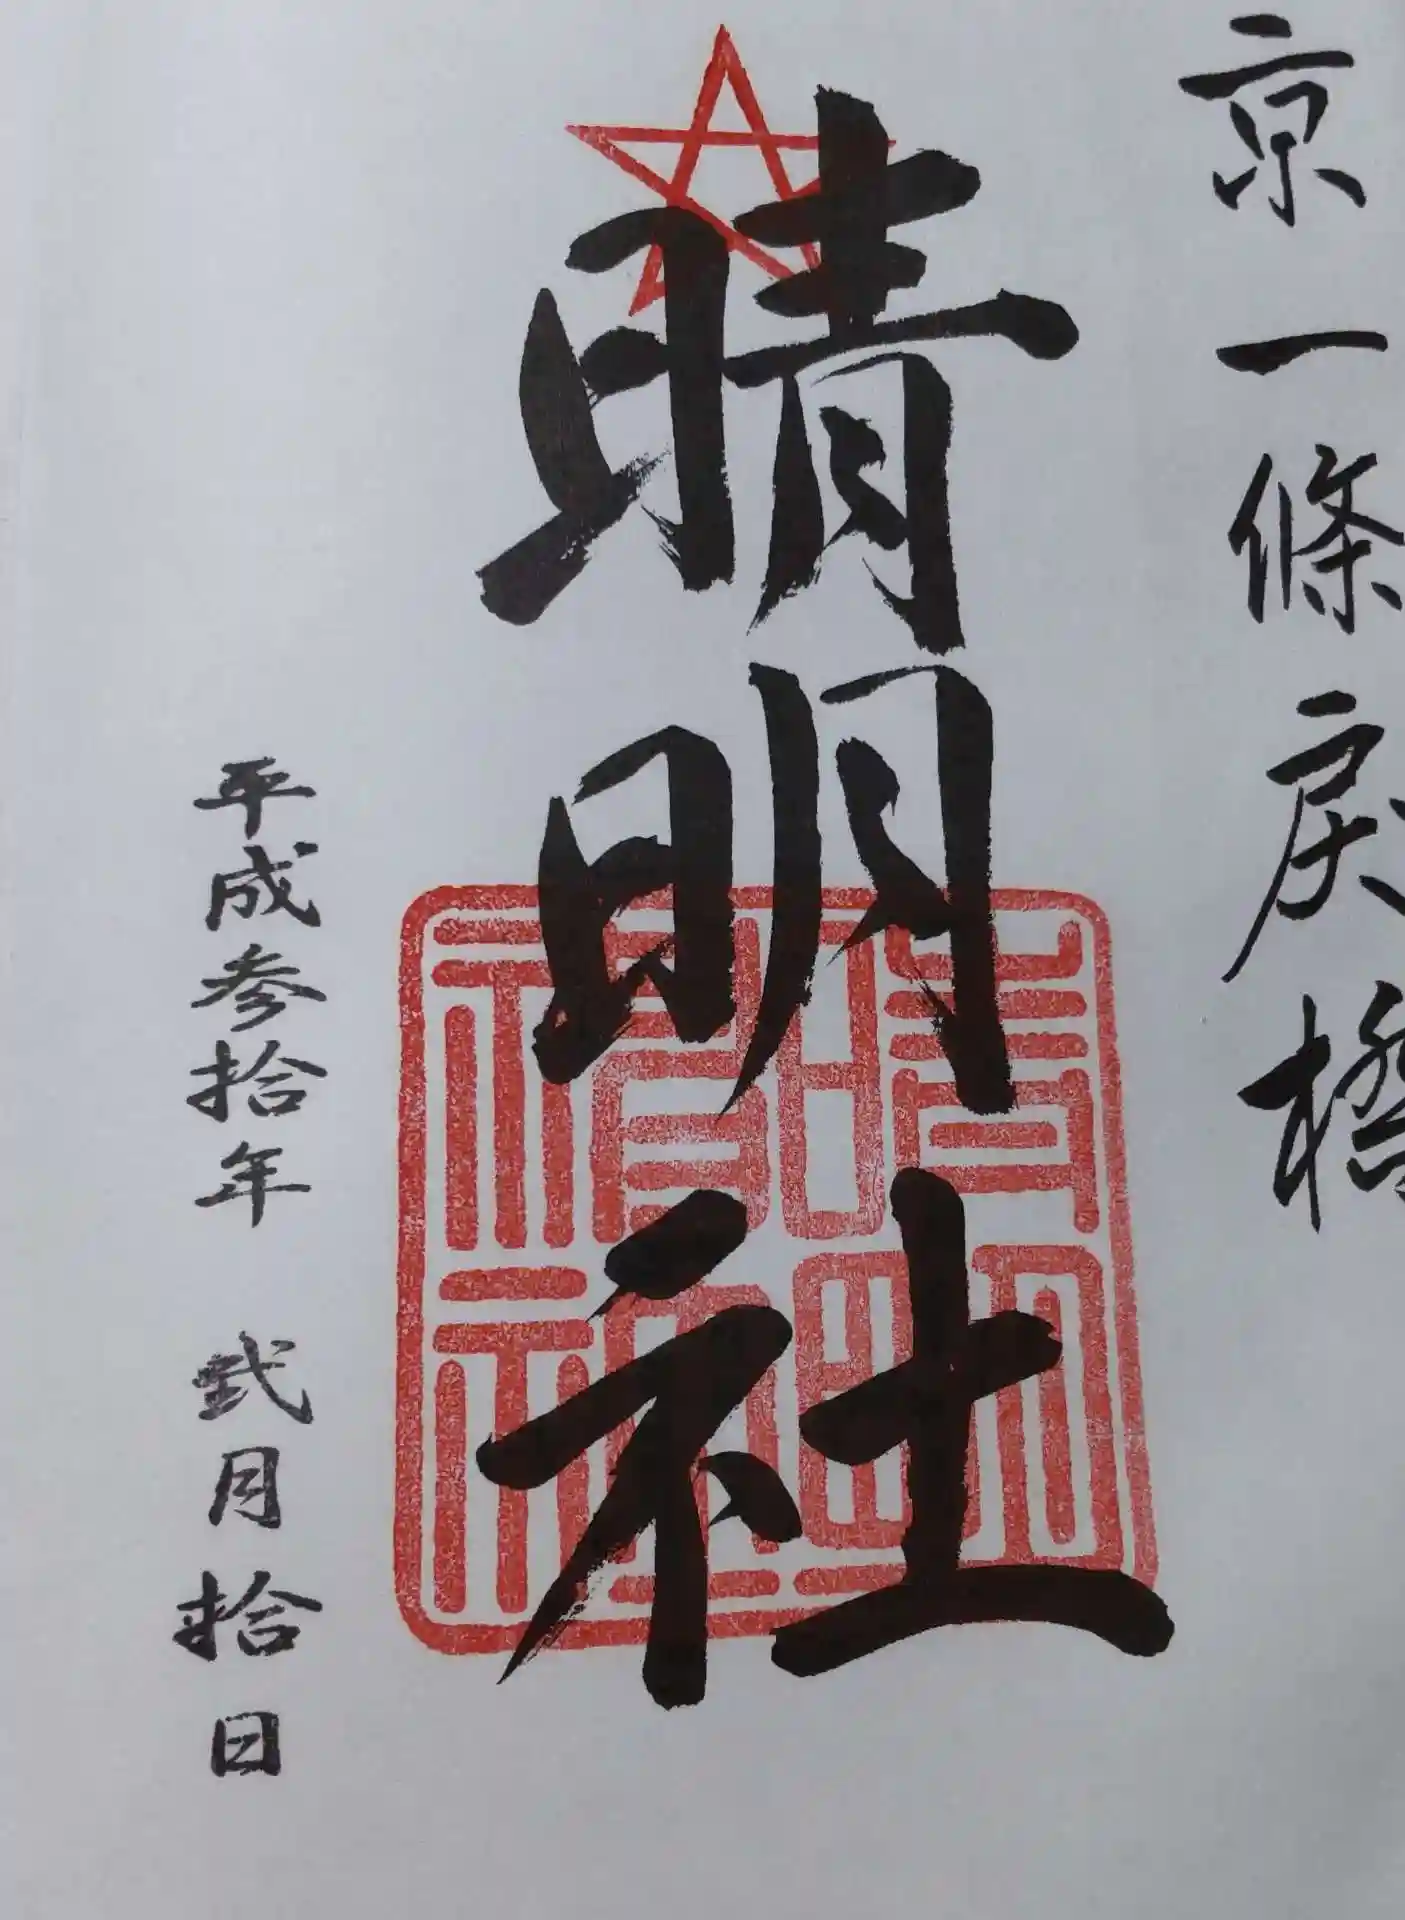 京一條戻橋
晴明社
晴明
禎社
平成参拾年 弐月拾日